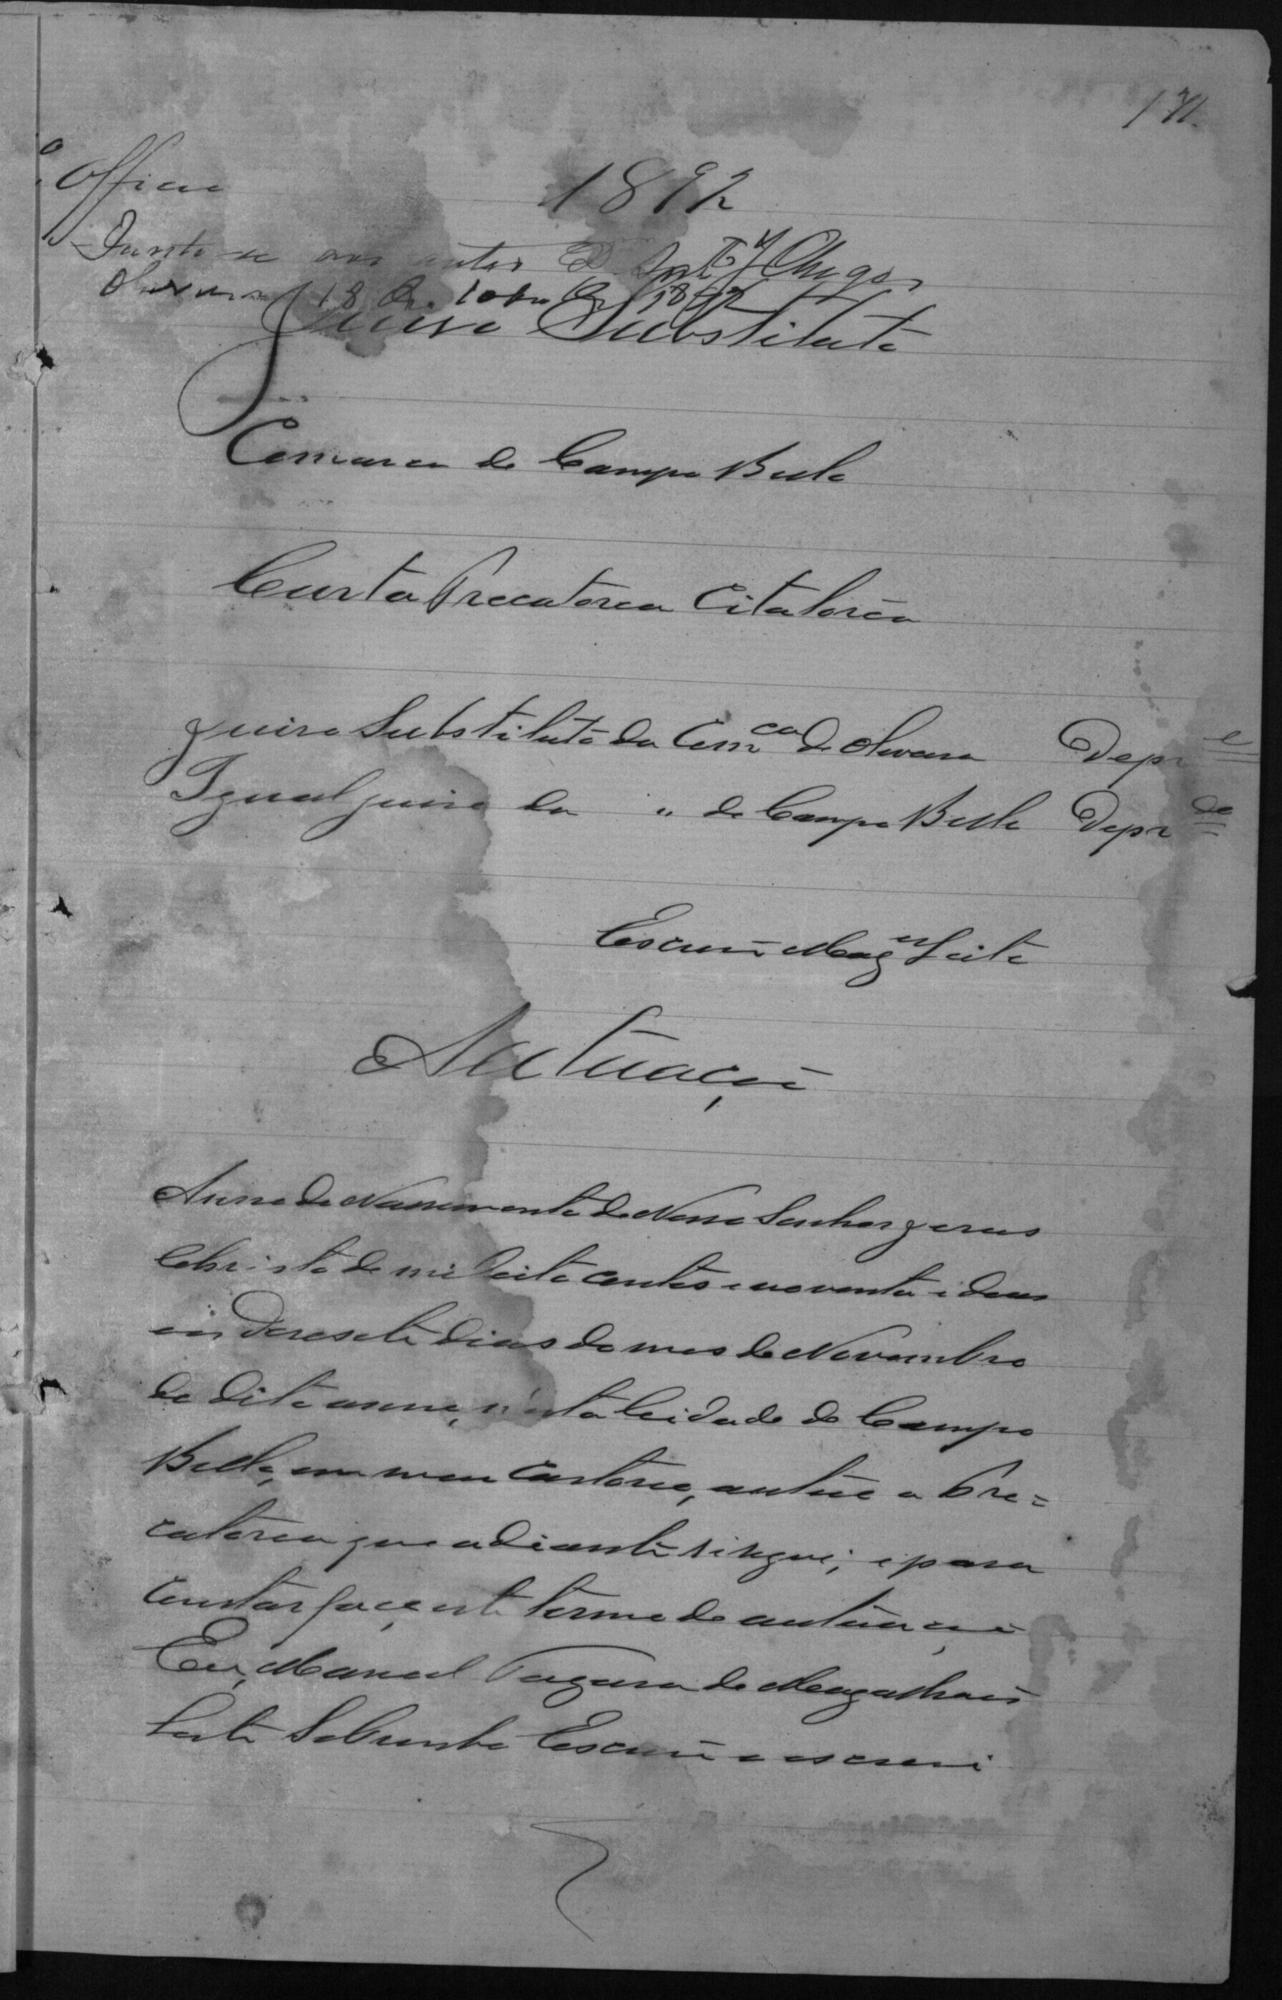 171
1892
º Officio
Junte-se aos autos
Oliveira 18 de 1892
Juizo Substituto
Comarca de Campo Bello
Carta Precatoria Citatoria
Juizo Substituto da Comca de Oliveira Depre
Igual juizo da " de Campo Bello Deprdo
Escrivm Mages Leite
Autuação
Anno do Nascimento de Nosso Senhor Jesus
Christo de mil oito centos e noventa e dous
aos dezesete dias do mes de Novembro
do dito anno, n'esta Cidade de Campo
Bello, em meu Cartorio, autúo a Pre=
catoria que adiante segue; e para
constar faço este termo de autuação
Eu, Manoel de Magalhães
Leite Sobrinho Escrivão o escrevi